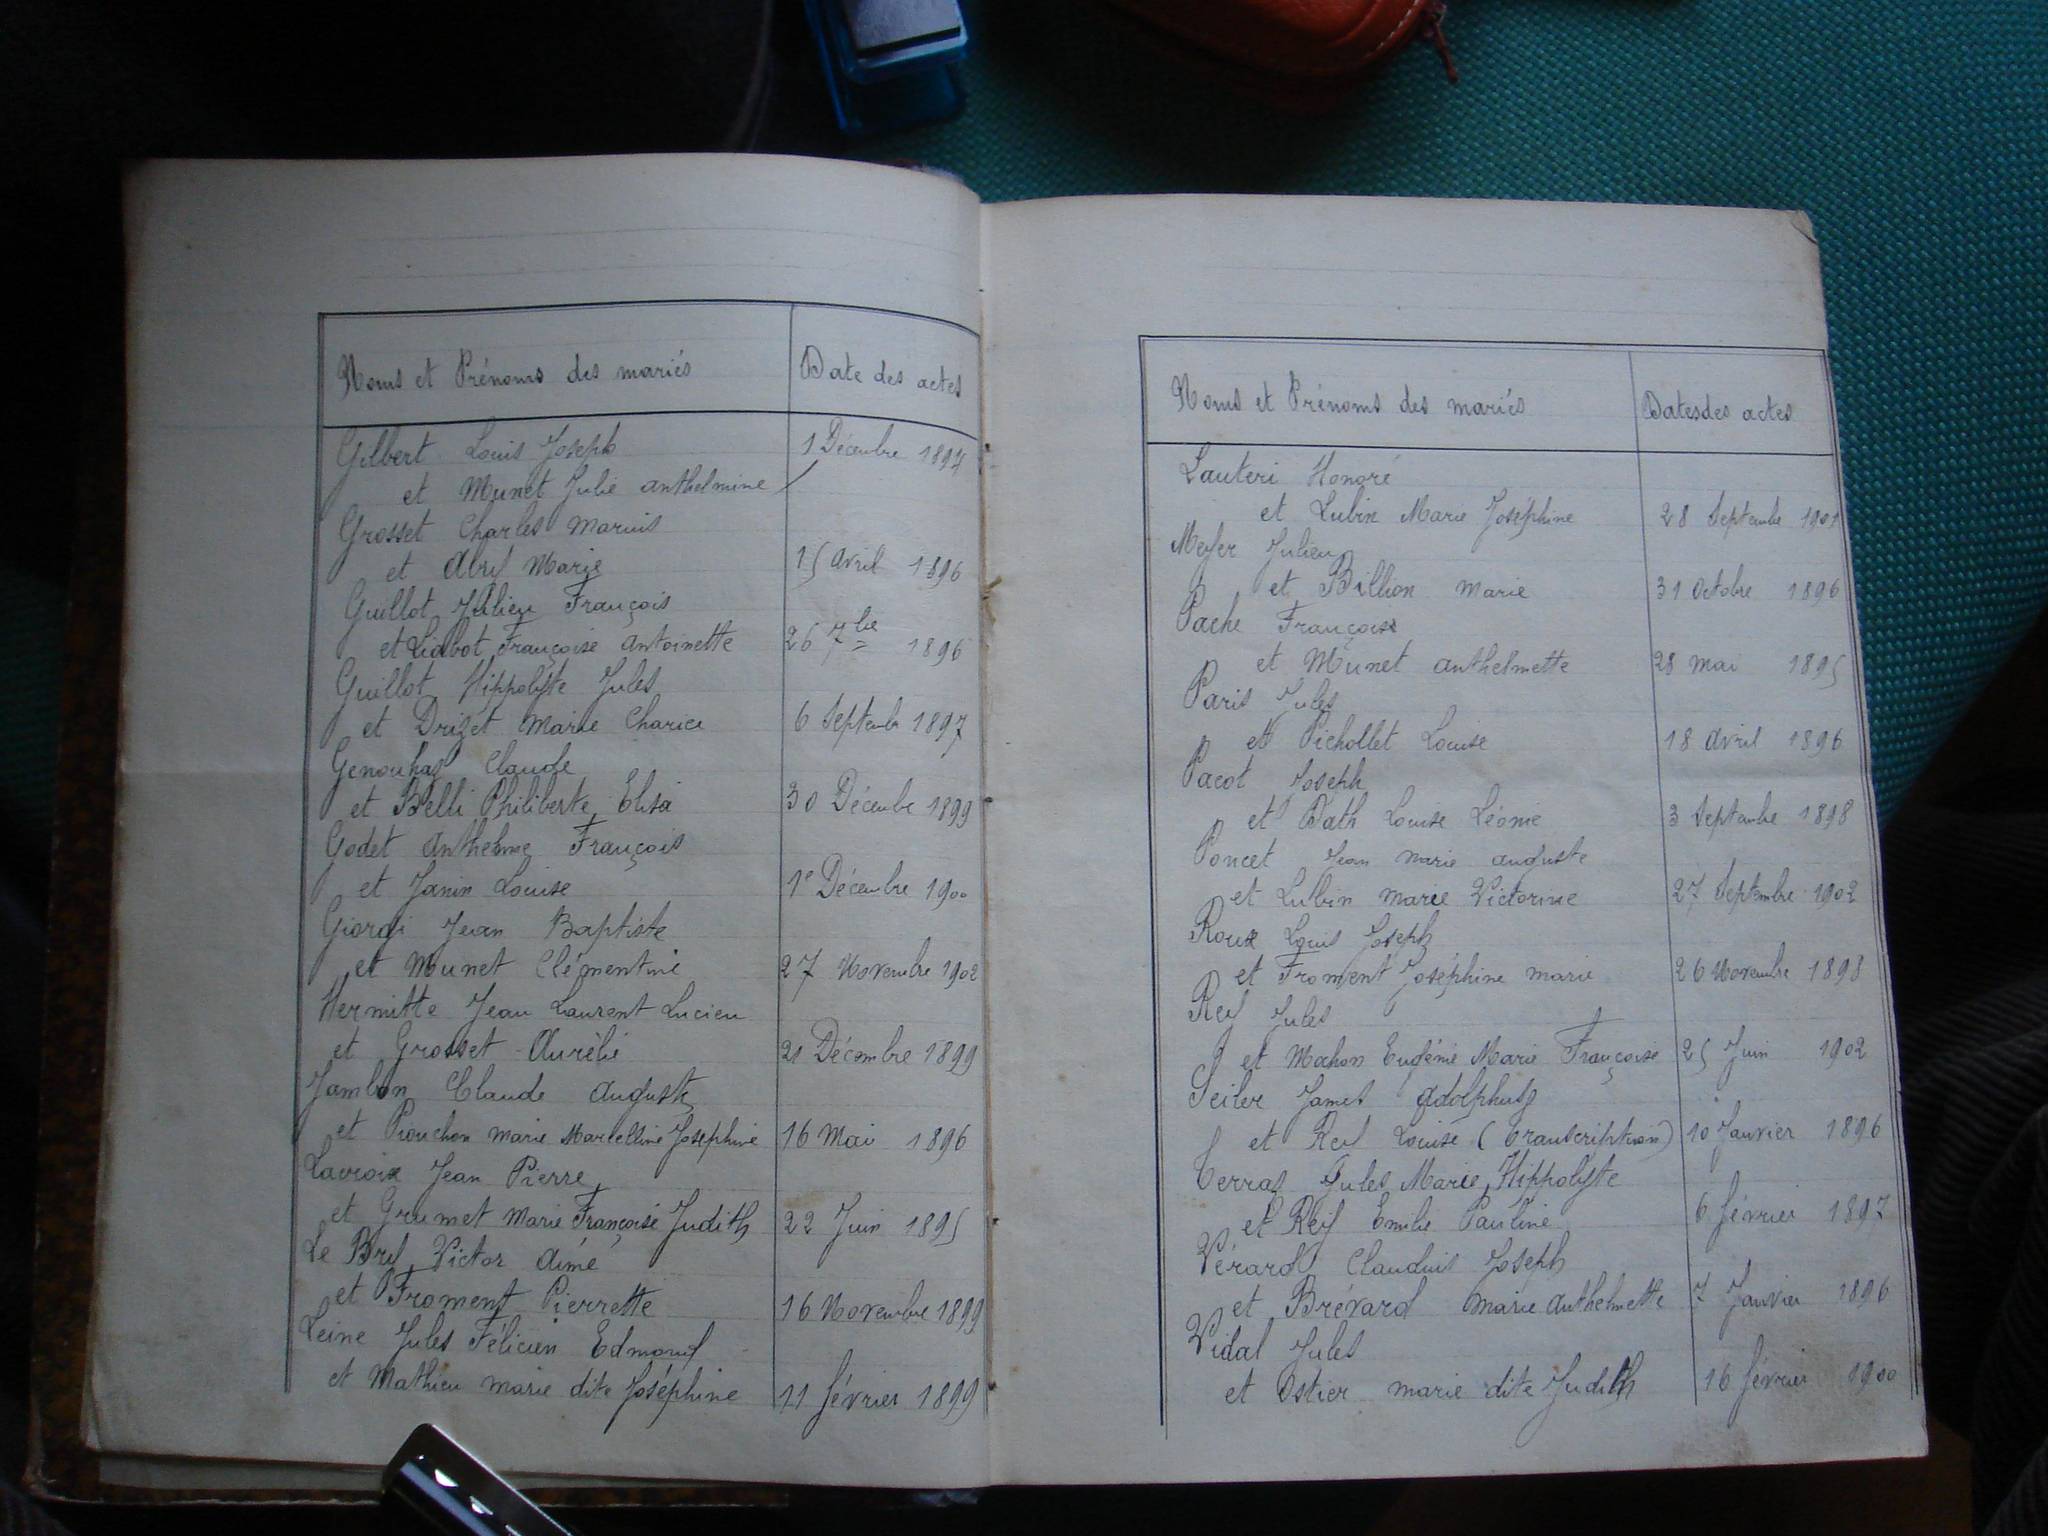 Noms et Prénoms des mariés Date des actes
Gilbert Louis Joseph 1 Décembre 1897
et Munet Julie anthelmine
Grosset Charles Marius
et Abry Marie 15 avril 1896
Guillot Julien François
et Liabot Françoise antoinette 26 7bre 1896
Guillot Hippolyte Jules
et Drizet Marie 6 Septembre 1897
Claude
et Belli Philiberte Elisa 30 Décembre 1899
Godet anthelme François
et Janin Louise 1e Décembre 1900
Giorgi Jean Baptiste
et Munet Clémentine 27 Novembre 1902
Hermitte Jean Laurent Lucien
et Grosset Aurélie 21 Décembre 1899
Jambon Claude auguste
et Piouchon marie Marcelline Joséphine 16 Mai 1896
Lavroix Jean Pierre
et Grumet Marie Françoise Judith 22 Juin 1895
Le Bril Victor aimé
et Froment Pierrette 16 Novembre 1899
Leine Jules Félicien Edmond
et Mathieu marie dite Joséphine 11 février 1899
Noms et Prénoms des mariés Dates des actes
Lauteri Honoré
et Lubin Marie Joséphine 28 Septembre 1901
Meyer Julien
et Billion marie 31 Octobre 1896
Pache François
et Munet anthelmette 28 mai 1895
Paris Jules
et Pichollet Louise 18 avril 1896
Pacot Joseph
et Dath Louise Léonie 3 Septembre 1898
Poncet Jean marie auguste
et Lubin marie Victorine 27 Septembre 1902
Roux Louis Joseph
et Froment Joséphine marie 26 Novembre 1898
Rey Jules
et Mahon Eugénie Marie Françoise 25 Juin 1902
Seiler James adolphus
et Rey Louise (transcription) 10 Janvier 1896
Terraz Jules Marie Hippolyte
et Rey Emilie Pauline 6 février 1897
Vérard Claudius Joseph
et Brévard marie anthelmette 7 Janvier 1896
Vidal Jules
et Ostier marie dite Judith 16 février 1900